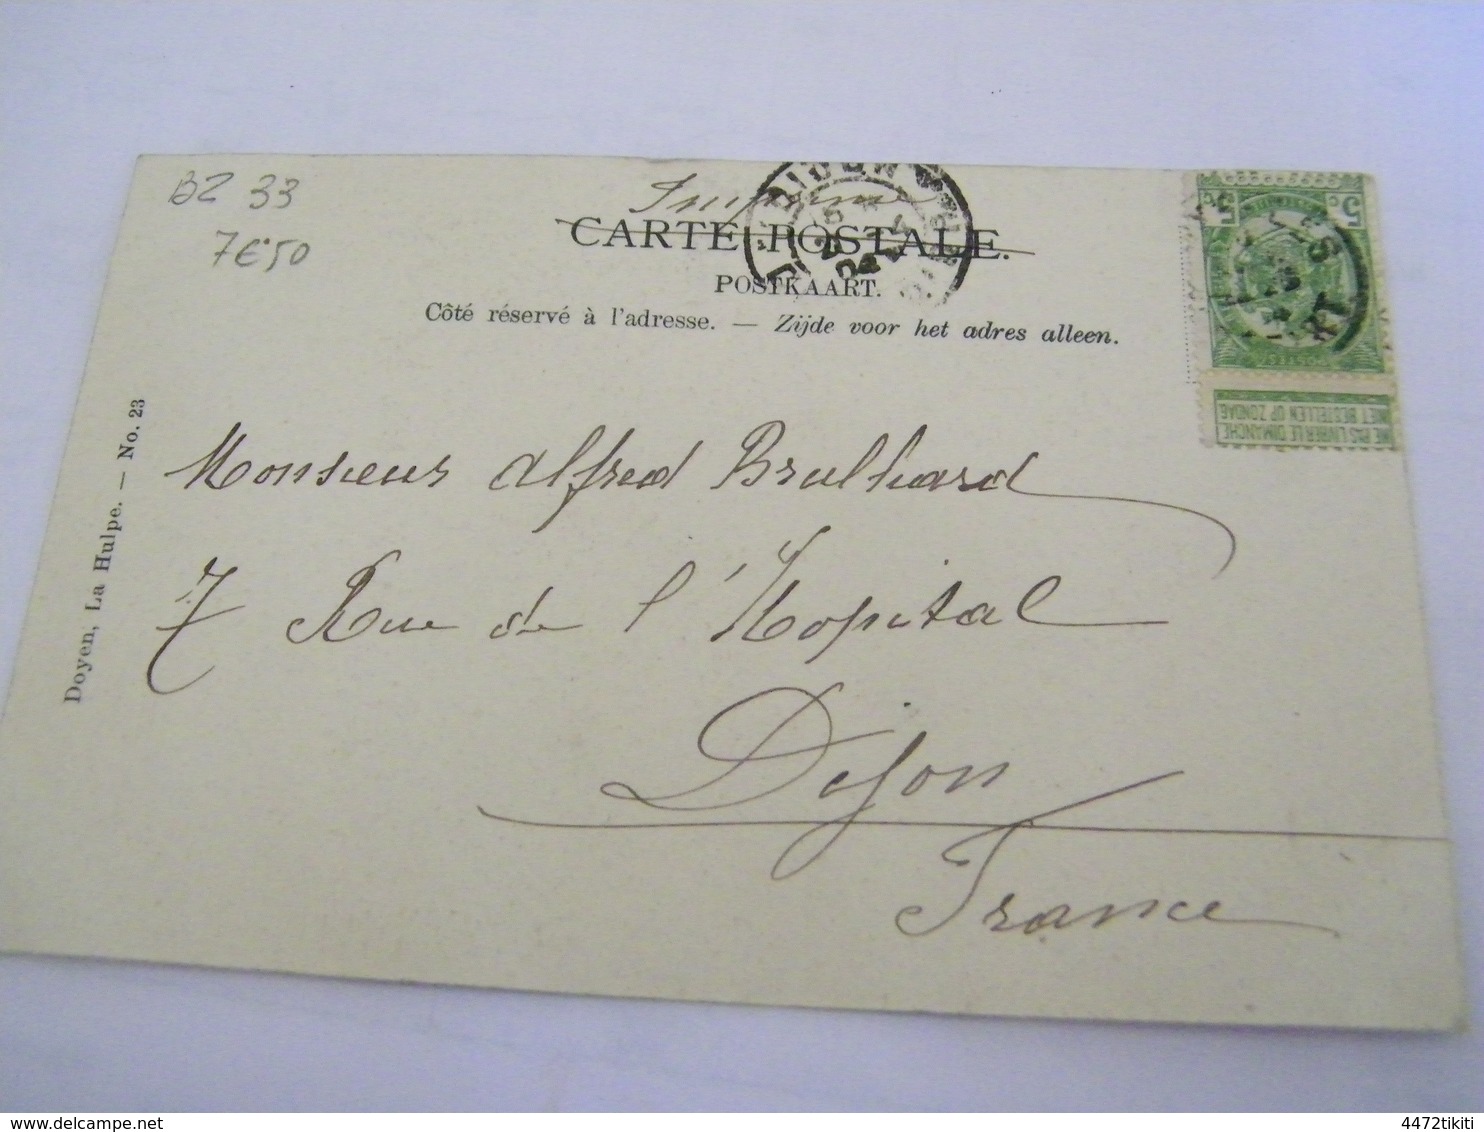 BZ 33
7€50
Imprimé
CARTE POSTALE.
POSTKAART.
Côté réservé à l'adresse. — Zijde voor het adres alleen.
5 c 5 c
NE PAS LIVRER LE DIMANCHE
NIET BESTELLEN OP ZONDAG
Doyen, La Hulpe. — No. 23
Monsieur Alfred Brulhard
7 Rue de l'Hopital
Dijon
France
delcampe.net
4472tikiti